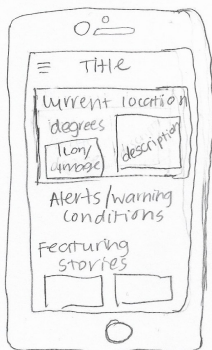 Title
Current location
degrees
Icon/
image
description
Alerts/warning
conditions
Featuring
stories